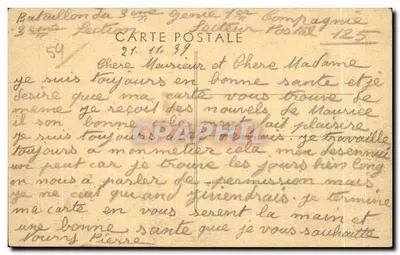 Bataillon du 3eme Genie 1er Compagnie
3eme Section Secteur Postal 125
CARTE POSTALE
59
21.11.39
Chere Monsieur et Chere Madame
je suis toujours en bonne sante et je
desire que ma carte vous trouve de
meme je reçoit des nouvels de Maurice
il son bonne plaisire
je suis toujours je travaille
toujours a mon metier cela men desennuie
un peut car je trouve les jours bien long
on nous a parler de permission mais
je ne cait quant je termine
ma carte en vous serent la main et
une bonne sante que je vous souhaitte
Pierre
CARTE POSTALE